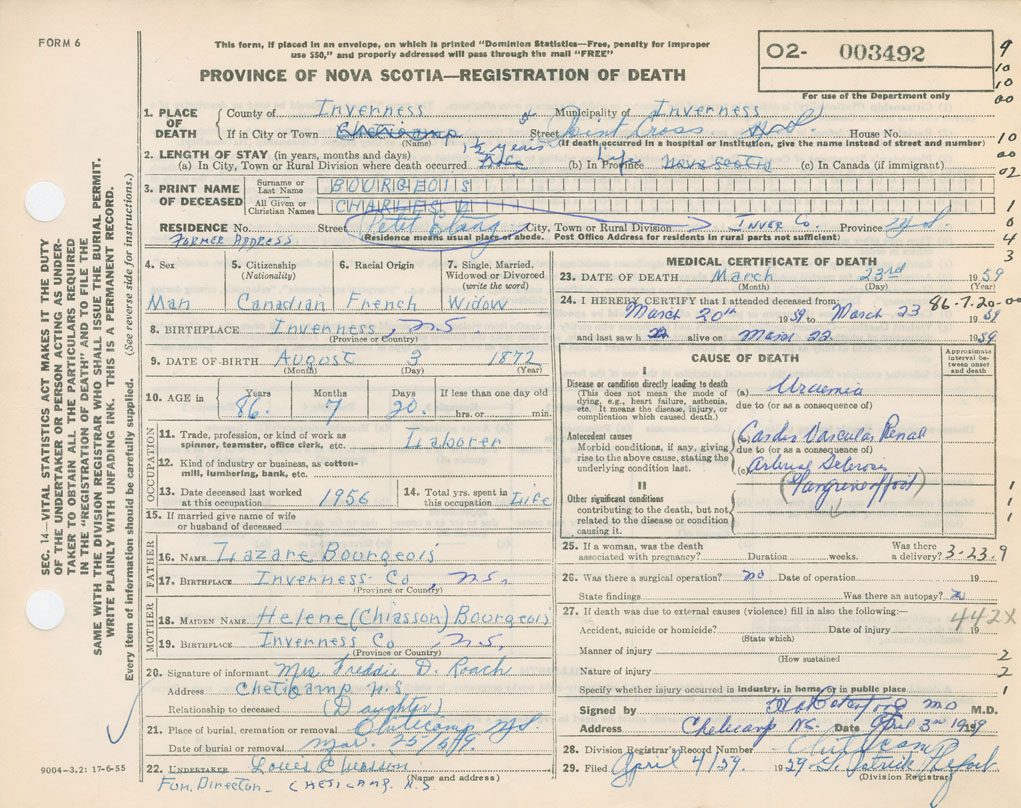 FORM 6
This form, if placed in an envelope, on which is printed "Dominion Statistics—Free, penalty for improper
use $50," and properly addressed will pass through the mail "FREE"
PROVINCE OF NOVA SCOTIA—REGISTRATION OF DEATH
O2- 003492
For use of the Department only
9
10
10
00
10
00
02
1
0
4
3
SEC. 14—VITAL STATISTICS ACT MAKES IT THE DUTY
OF THE UNDERTAKER OR PERSON ACTING AS UNDER-
TAKER TO OBTAIN ALL THE PARTICULARS REQUIRED
IN THE "REGISTRATION OF DEATH" AND TO FILE THE
SAME WITH THE DIVISION REGISTRAR WHO SHALL ISSUE THE BURIAL PERMIT.
WRITE PLAINLY WITH UNFADING INK. THIS IS A PERMANENT RECORD.
Every item of information should be carefully supplied. (See reverse side for instructions.)
1. PLACE OF DEATH
County of Inverness Municipality of Inverness
If in City or Town Cheticamp Street Point Cross House No.
(Name) (If death occurred in a hospital or institution, give the name instead of street and number)
2. LENGTH OF STAY (in years, months and days) 1½ years Life
(a) In City, Town or Rural Division where death occurred (b) In Province Nova Scotia (c) In Canada (if immigrant)
3. PRINT NAME OF DECEASED
Surname or Last Name BOURGEOIS
All Given or Christian Names CHARLES
RESIDENCE No. Street Petit Etang City, Town or Rural Division INVER Co. Province N.S.
FORMER ADDRESS (Residence means usual place of abode. Post Office Address for residents in rural parts not sufficient)
4. Sex Man
5. Citizenship (Nationality) Canadian
6. Racial Origin French
7. Single, Married, Widowed or Divorced (write the word) Widow
8. BIRTHPLACE Inverness, N.S.
(Province or Country)
9. DATE OF BIRTH August 3 1872
(Month) (Day) (Year)
10. AGE in Years 86. Months 7 Days 20. If less than one day old hrs. or min.
OCCUPATION
11. Trade, profession, or kind of work as spinner, teamster, office clerk, etc. Laborer
12. Kind of industry or business, as cotton-mill, lumbering, bank, etc.
13. Date deceased last worked at this occupation 1956
14. Total yrs. spent in this occupation Life
15. If married give name of wife or husband of deceased
FATHER
16. NAME Lazare Bourgeois
17. BIRTHPLACE Inverness Co, N.S.
(Province or Country)
MOTHER
18. MAIDEN NAME Helene (Chiasson) Bourgeois
19. BIRTHPLACE Inverness Co, N.S.
(Province or Country)
20. Signature of informant Mrs. Freddie D. Roach
Address Cheticamp N.S
Relationship to deceased (Daughter)
21. Place of burial, cremation or removal Cheticamp NS
Date of burial or removal Mar. 25/59.
22. UNDERTAKER
(Name and address)
Fun. Director - CHETICAMP. N.S.
9004—3.2: 17-6-55
MEDICAL CERTIFICATE OF DEATH
23. DATE OF DEATH March 23rd 1959
(Month) (Day) (Year)
24. I HEREBY CERTIFY that I attended deceased from: 86-7.20-00
March 20th 1959 to March 23 1959
and last saw h alive on March 22 1959
CAUSE OF DEATH
Approximate interval between onset and death
I
Disease or condition directly leading to death
(This does not mean the mode of dying, e.g., heart failure, asthenia, etc. It means the disease, injury, or complication which caused death.)
(a) Uraemia
due to (or as a consequence of)
Antecedent causes
Morbid conditions, if any, giving rise to the above cause, stating the underlying condition last.
Cardio Vascular Renal
due to (or as a consequence of)
(c) Arterial Sclerosis
(Gangrene of foot)
II
Other significant conditions contributing to the death, but not related to the disease or condition causing it.
1
1
1
25. If a woman, was the death associated with pregnancy? Duration weeks. Was there a delivery? 3-23-9
26. Was there a surgical operation? no Date of operation 19
State findings Was there an autopsy?
27. If death was due to external causes (violence) fill in also the following:— 442X
Accident, suicide or homicide? Date of injury 19
(State which)
Manner of injury 2
(How sustained)
Nature of injury 2
Specify whether injury occurred in industry, in home, or in public place 1
Signed by MD M.D.
Address Cheticamp NS. Date April 3rd 1959
28. Division Registrar's Record Number
29. Filed April 4/59 1959
(Division Registrar)